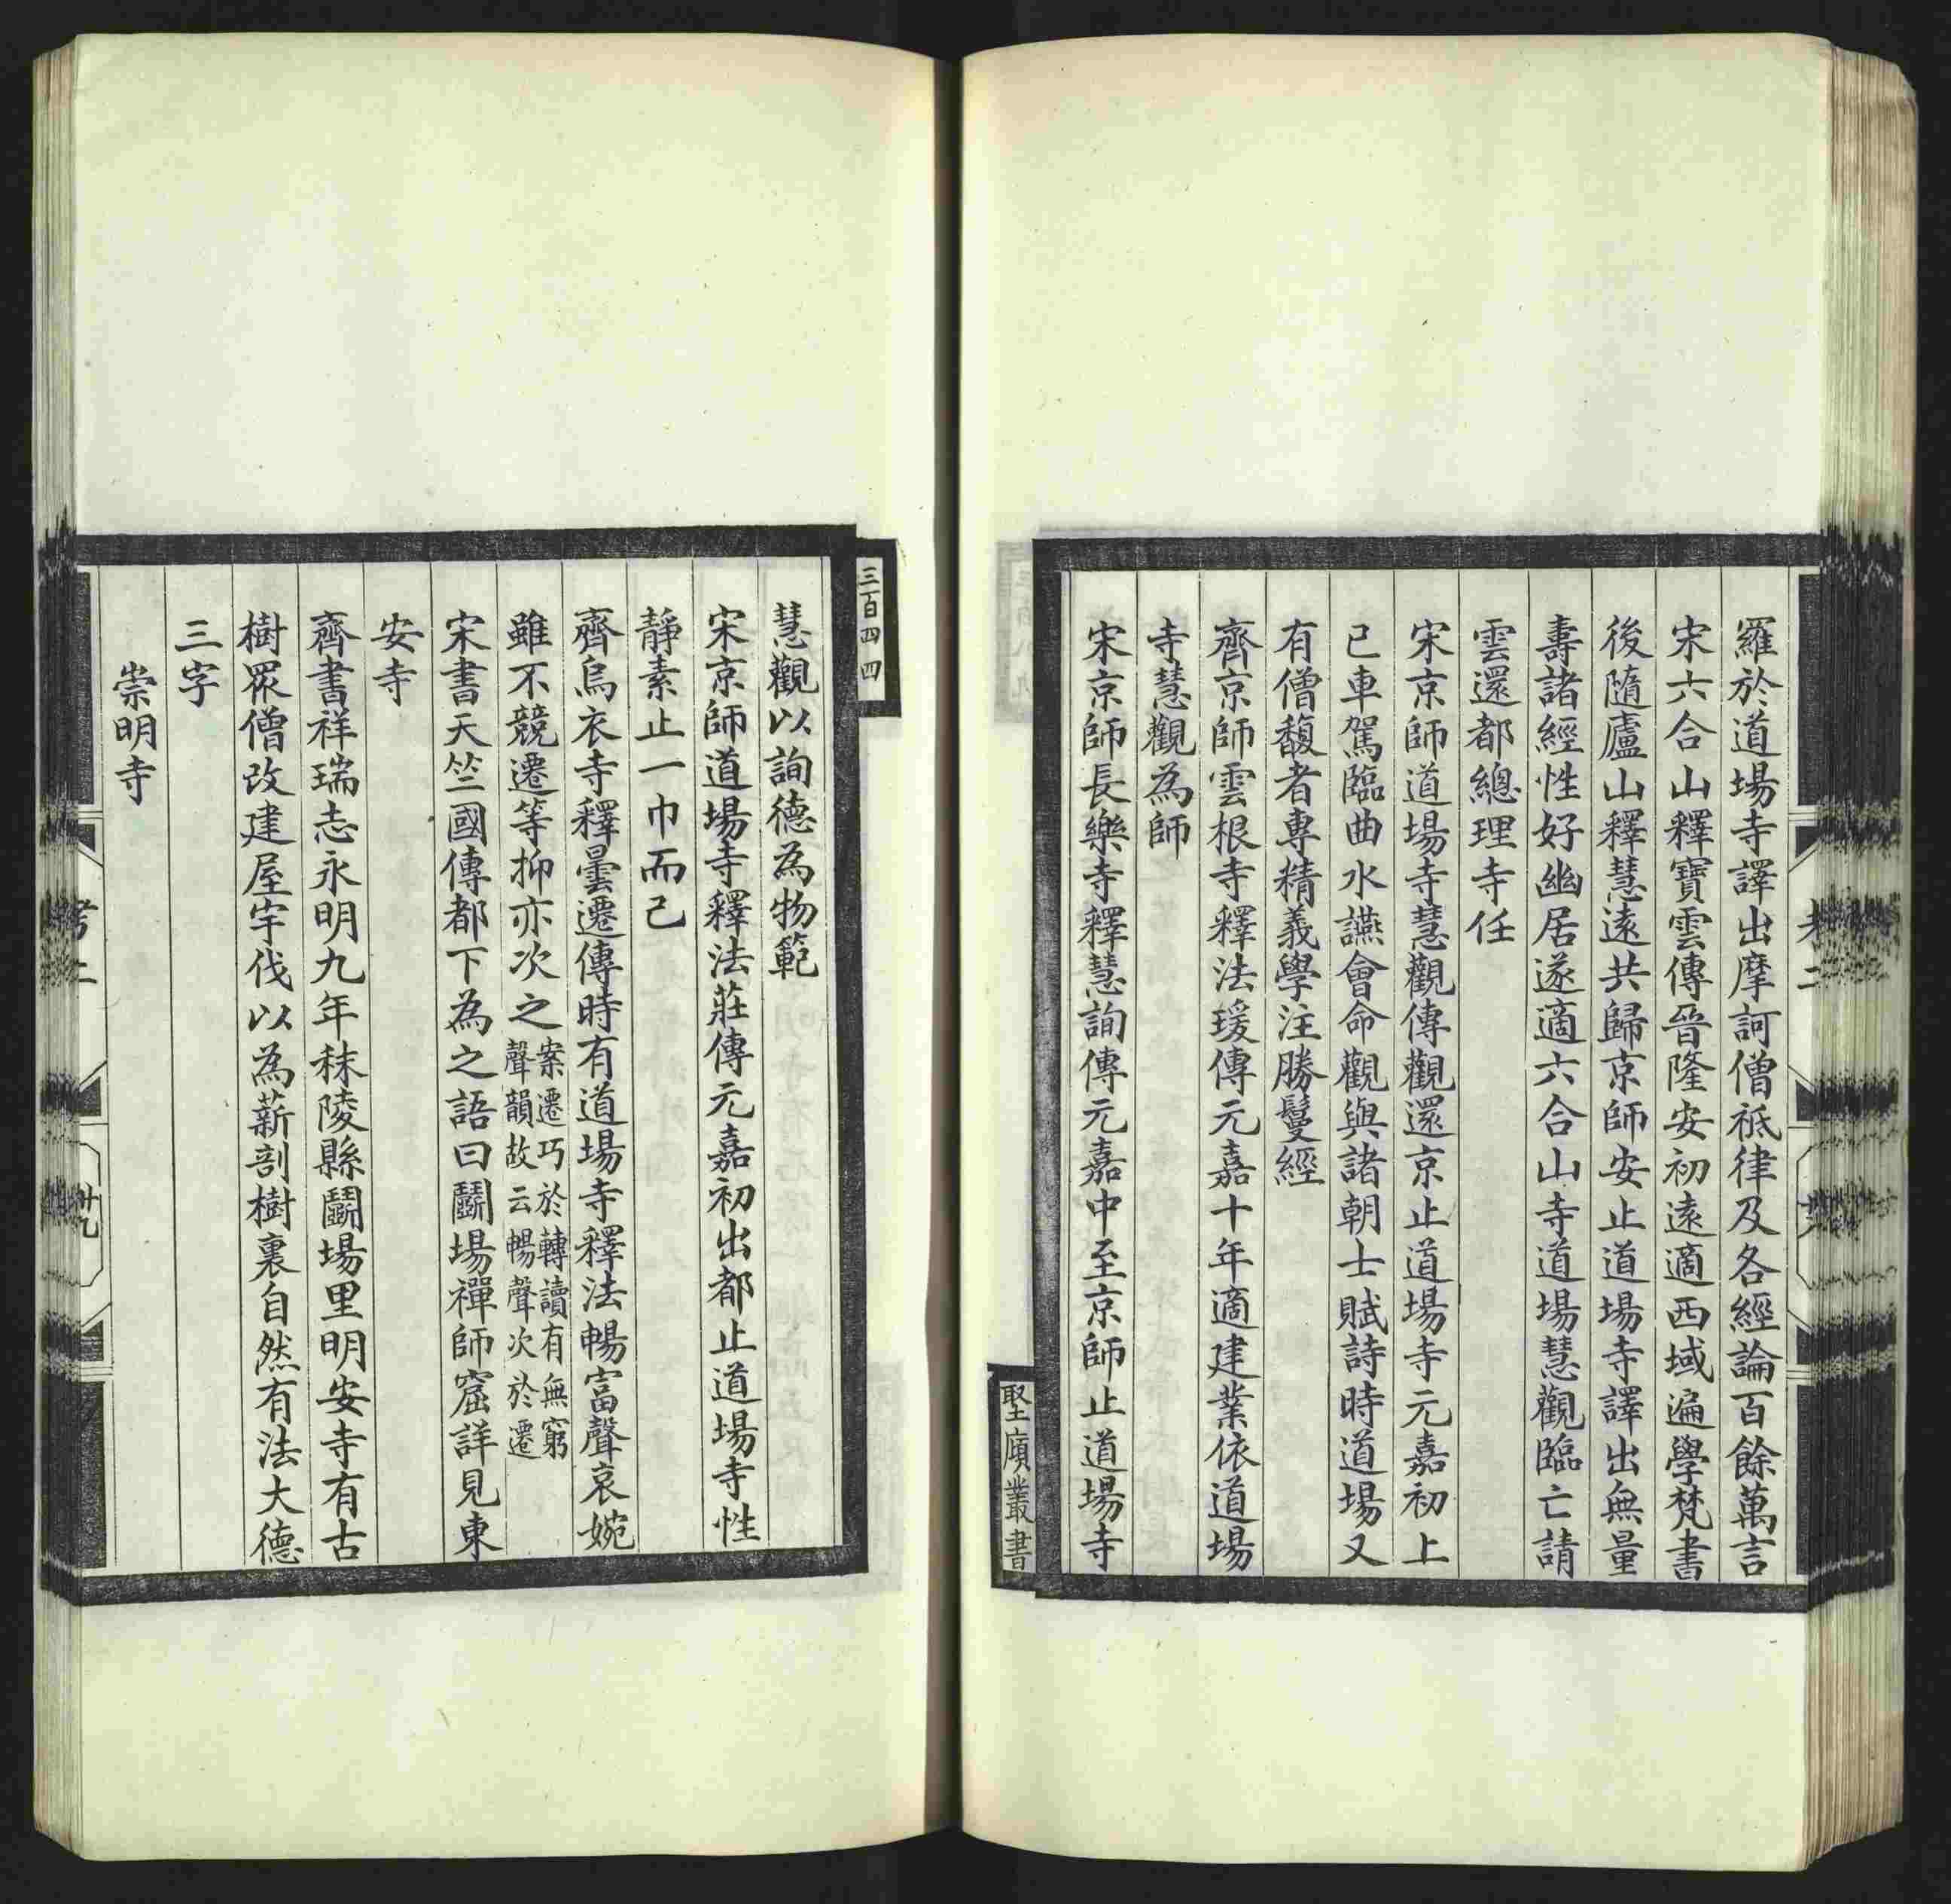 羅於道場寺譯出摩訶僧祇律及各經論百餘萬言
宋六合山釋寶雲傳晉隆安初遠適西域遍學梵書
後隨廬山釋慧遠共歸京師安止道場寺譯出無量
壽諸經性好幽居遂適六合山寺道場慧觀臨亡請
雲還都總理寺任
宋京師道場寺慧觀傳觀還京止道場寺元嘉初上
已車駕臨曲水讌會命觀與諸朝士賦詩時道場又
有僧馥者專精義學注勝鬘經
齊京師雲根寺釋法瑗傳元嘉十年適建業依道場
寺慧觀為師
宋京師長樂寺釋慧詢傳元嘉中至京師止道場寺
堅廎叢書
三百四四
慧觀以詢德為物範
宋京師道場寺釋法莊傳元嘉初出都止道場寺性
靜素止一巾而己
齊烏衣寺釋曇遷傳時有道場寺釋法暢富聲哀婉
雖不競遷等抑亦次之案遷巧於轉讀有無窮
聲韻故云暢聲次於遷
宋書天竺國傳都下為之語曰鬭場禪師窟詳見東
安寺
齊書祥瑞志永明九年秣陵縣鬭場里明安寺有古
樹眾僧改建屋宇伐以為薪剖樹裏自然有法大德
三字
崇明寺
考二
廿九